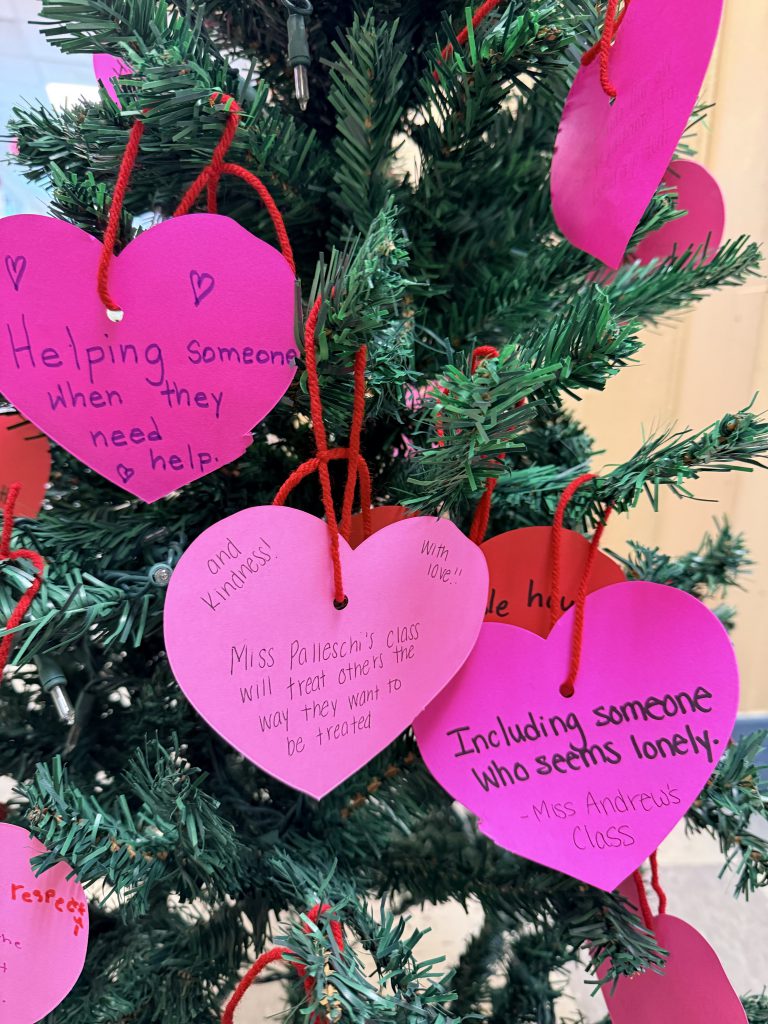 Helping someone
when they
need
help.
and
Kindness!
With
love!!
Miss Palleschi's class
will treat others the
way they want to
be treated
Including someone
who seems lonely.
-Miss Andrew's
Class
respect